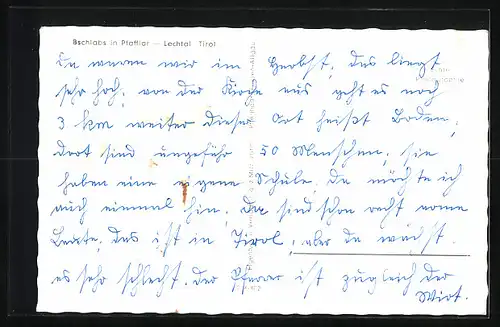 Bschlabs in Pfafflar — Lechtal Tirol
Da waren wir im Herbst, das liegt
sehr hoch, von der Kirche aus geht es noch
3 km weiter dieser Ort heißt Boden,
dort sind ungefähr 50 Menschen, sie
haben eine eigene Schule, da möchte ich
auch einmal hin. Da sind schon recht arme
Leute, das ist in Tirol, aber da wächst
es sehr schlecht. Der Pfarrer ist zugleich der
Wirt.